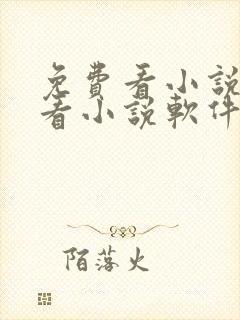 免費看小説
看小説軟件
陌落火